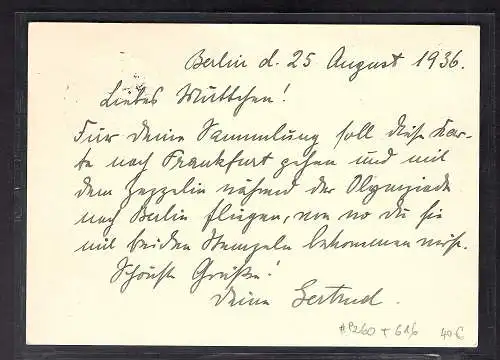 Berlin d. 25 August 1936.
Liebes Muttchen!
Für Deine Sammlung soll diese Kar-
te nach Frankfurt gehen und mit
dem Zeppelin während der Olympiade
nach Berlin fliegen, von wo du sie
mit beiden Stempeln bekommen wirst.
Schönste Grüße!
Deine Gertrud.
40€